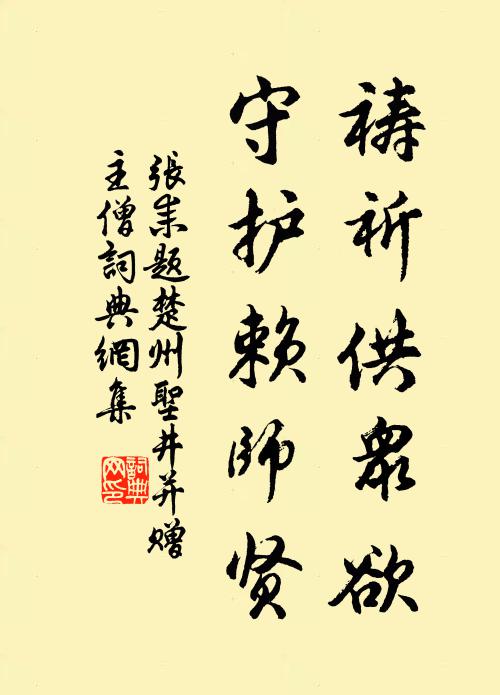 祷祈供眾欲
守护赖師贤
張耒題楚州聖井并赠
主僧詞典網集
詞典
网印